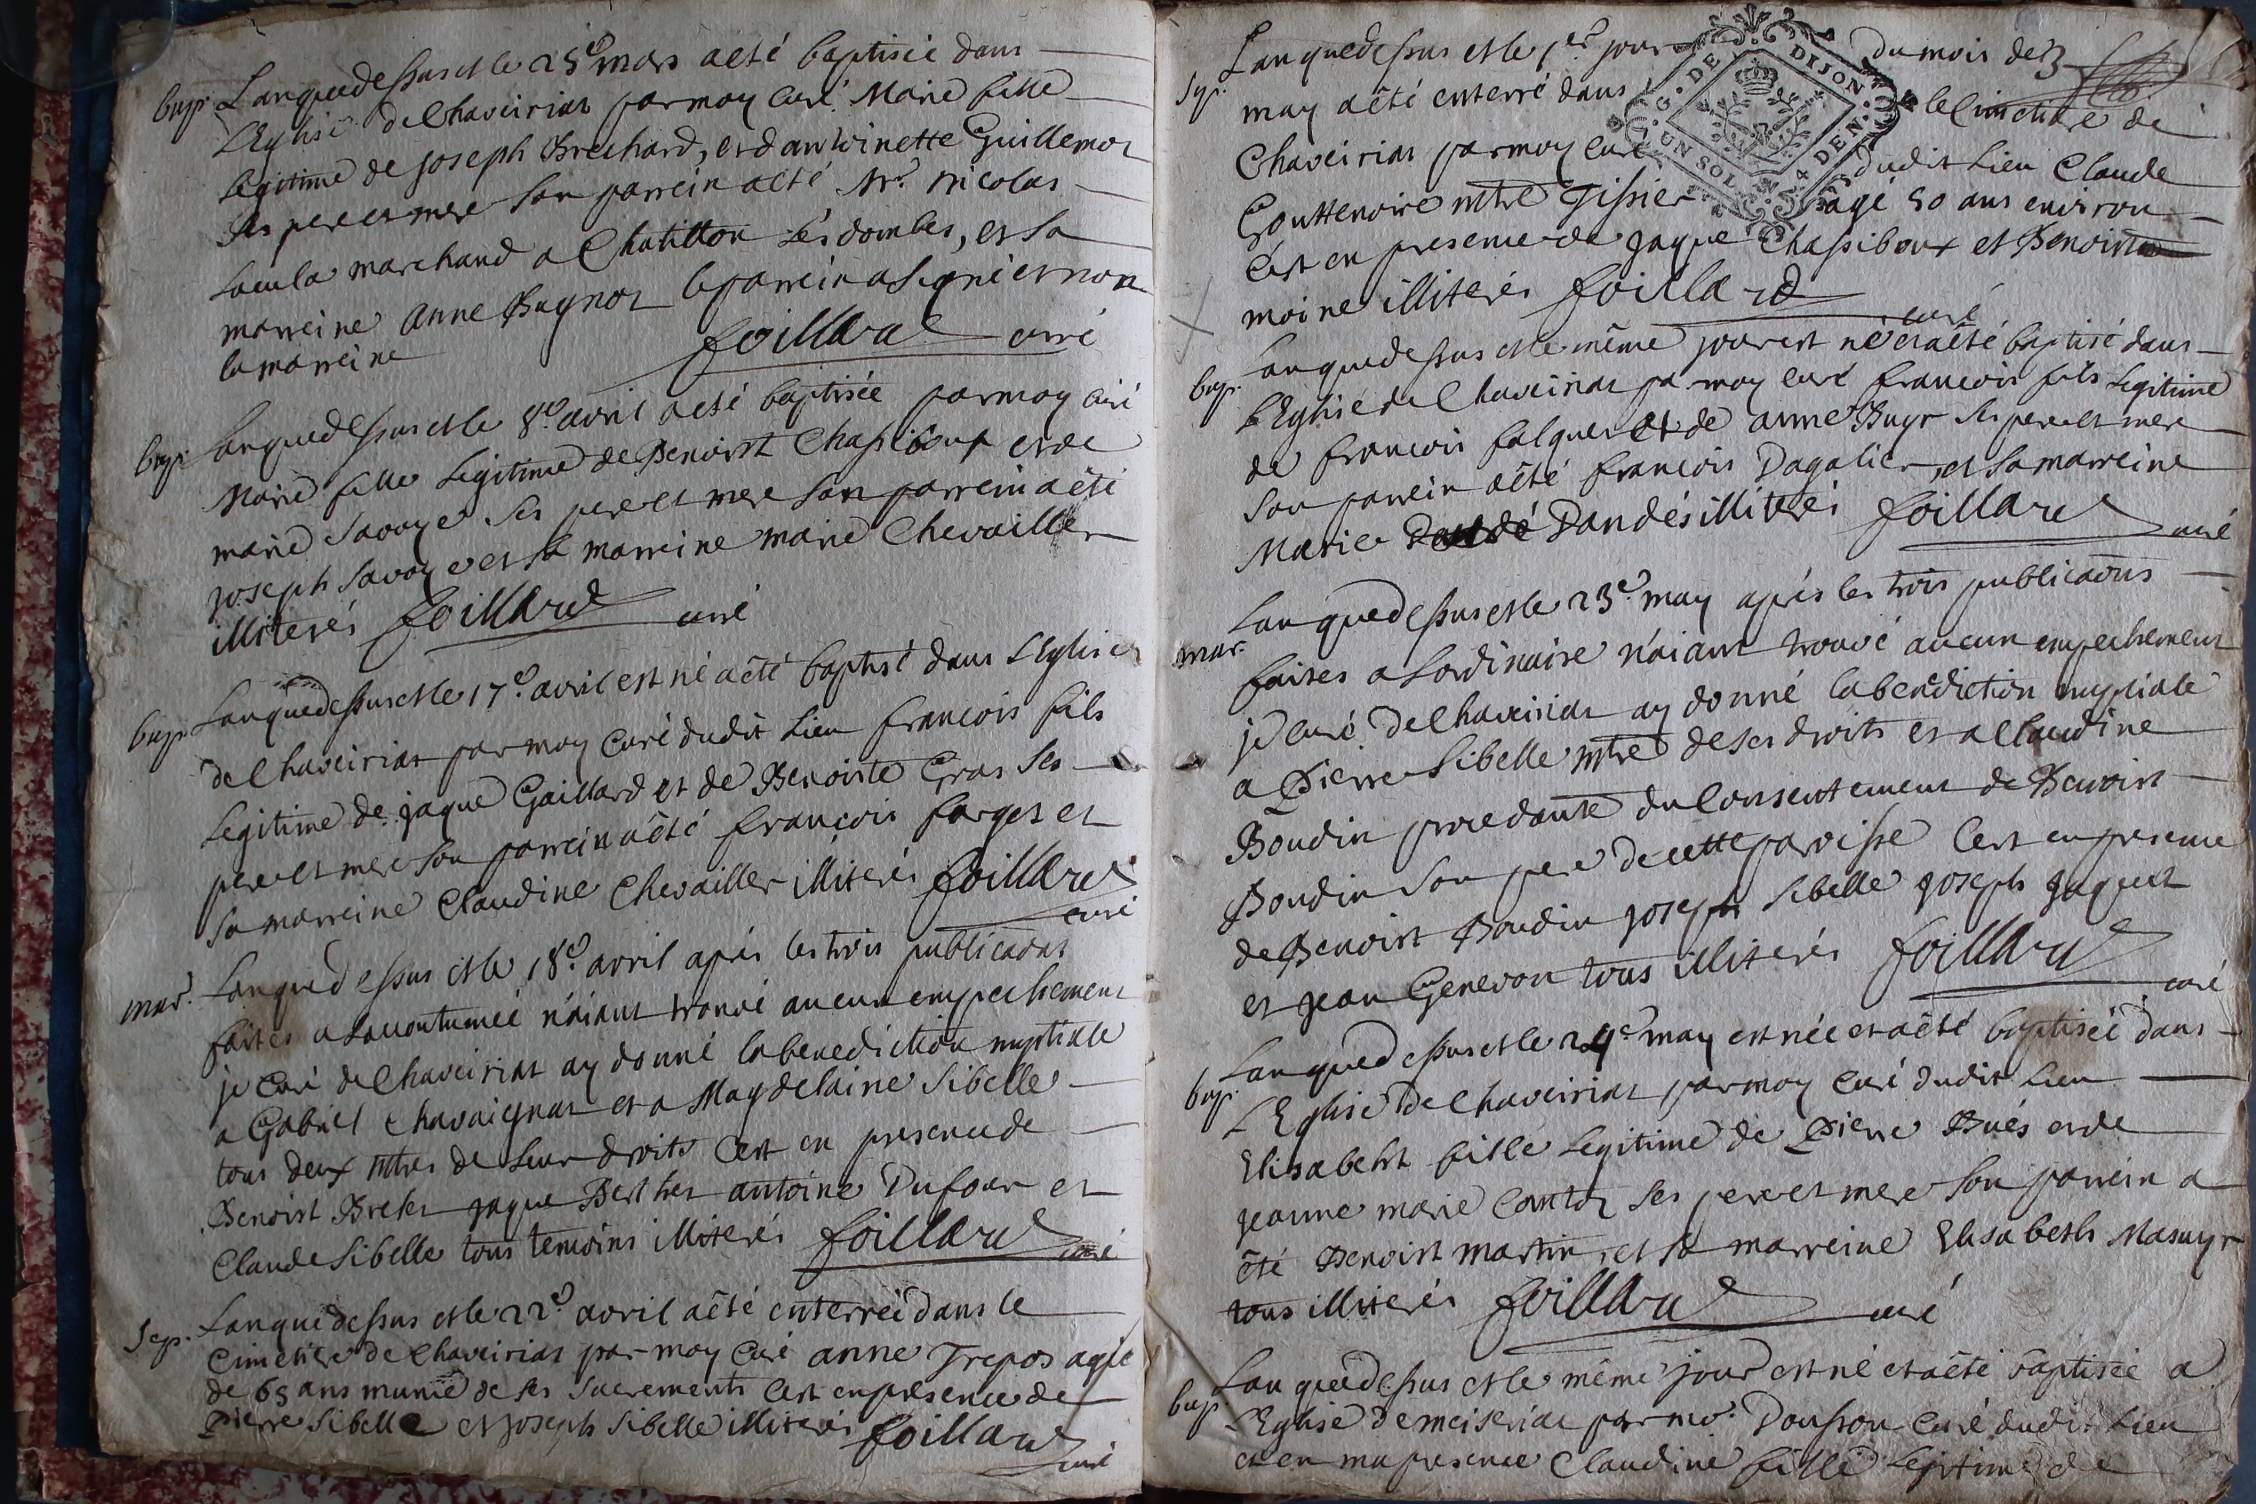 bap. Lan que dessus et le 25e mars a eté baptisée dans
l'Eglise de Chaveiriat par moy curé Marie fille
legitime de joseph Brechard, et d'antoinette Guillemot
ses pere et mere son parrein a eté Mr. Nicolas
Lacula marchand a Chatillon les dombes, et sa
marreine Anne Bugnot le parrein a signé et non
la marreine foillard curé
bap. Lan que dessus et le 8e avril a eté baptisée par moy curé
Marie fille legitime de Benoist Chassiboux et de
marie Savoye ses pere et mere son parrein a eté
joseph Savoye et sa marreine marie Chevailler
illiterés foillard curé
bap. Lan que dessus et le 17e avril est né a êté baptisé dans l'Eglise
de Chaveiriat par moy curé dudit lieu francois fils
legitime de jaque Gaillard et de Benoite Gras ses
pere et mere son parrein a êté françois farget et
sa marreine Claudine Chevailler illiterés foillard
curé
mar. Lan que dessus et le 18e avril aprés les trois publicaons
faites a lacoutumée n'aiant trouvé aucun empechement
je curé de Chaveiriat ay donné la benediction nuptiale
a Gabriel Chavaignat et a Magdelaine Sibelle
tous deux mtres de leur droits C'est en presence de
Benoist Breket jaque Berthet antoine Dufour et
Claude Sibelle tous temoins illiterés foillard curé
Sep. Lan que dessus et le 22e avril a êté enterrée dans le
Cimetiere de Chaveiriat par moy Curé anne Trepos agée
de 65 ans munie de ses sacrements C'est en presence de
Pierre Sibelle et joseph Sibelle illiterés foillard
curé
Sep. Lan que dessus et le 1er jour du mois de
may a êté enterré dans le Cimetiere de
Chaveiriat par moy curé dudit lieu Claude
Gouttenoire mtre Tissier agé 50 ans environ
C'est en presence de jaque Chassiboux et Benoist
moine illiterés foillard curé
G. DE DIJON
UN SOL 4 DEN.
bap. Lan que dessus et le même jour est né et a êté baptisé dans
l'Eglise de Chaveiriat par moy curé francois fils legitime
de francois falquet et de anne Buyr ses pere et mere
son parrein a êté francois Dagalier, et sa marreine
Marie Dandés illiterés foillard curé
mar. Lan que dessus et le 23e may aprés les trois publicaons
faites a Lordinaire n'aiant trouvé aucun empechement
je curé de Chaveiriat ay donné la benediction nuptiale
a Pierre Sibelle mtre de ses droits et a Claudine
Boudin procedante du Consentement de Benoist
Boudin son pere de cette paroisse C'est en presence
de Benoist Boudin joseph Sibelle joseph jaquet
et jean Genevon tous illiterés foillard
curé
bap. Lan que dessus et le 24e may est née et a êté baptisée dans
L'Eglise de Chaveiriat par moy Curé dudit lieu
Elisabeht fille legitime de Pierre Bués et de
jeanne marie Comtet ses pere et mere son parrein a
êté Benoist martin, et sa marreine Elisabeth Masuyr
tous illiterés foillard curé
bap. Lan que dessus et le même jour est né et a êté baptisée a
l'Eglise de meiseriat par mr. Dousson Curé dudit lieu
et en ma presence Claudine fille legitime de